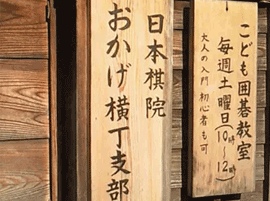 日本棋院
おかげ横丁支部
こども囲碁教室
毎週土曜日10時～12時
大人の入門 初心者も可